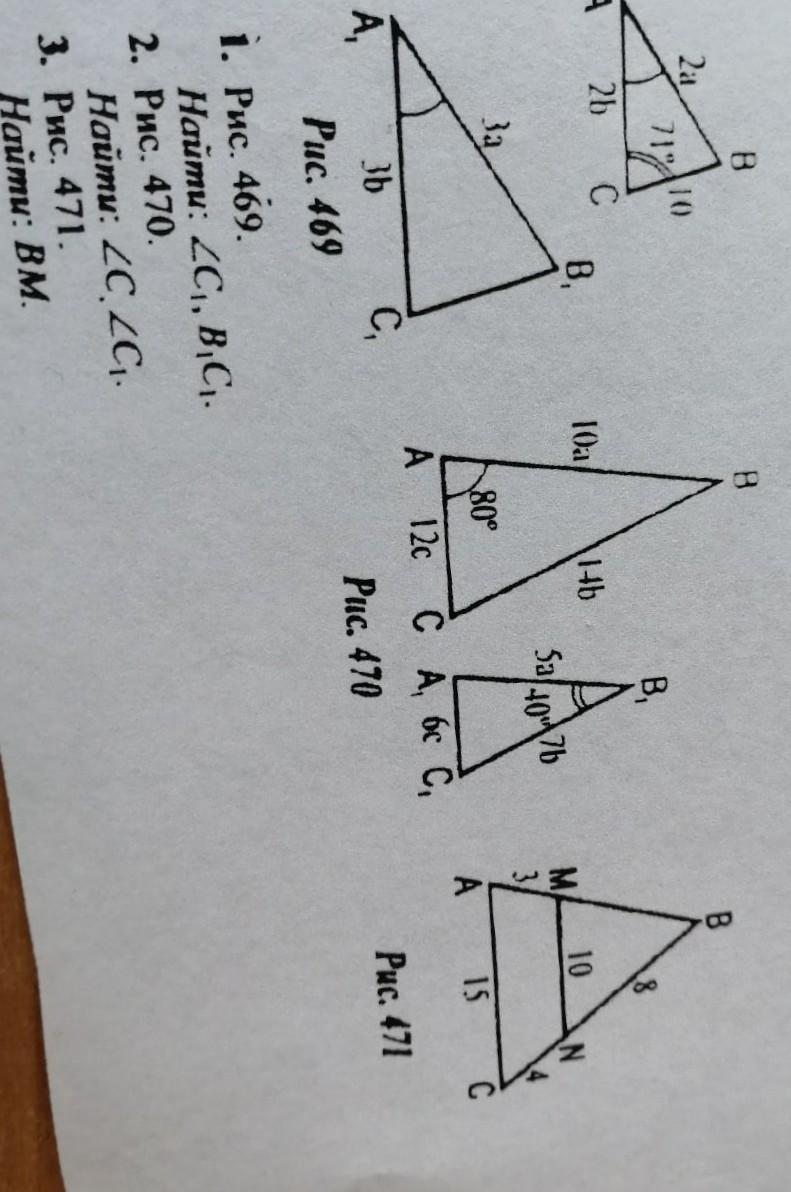 A
2a
B
71°
10
2b
C
A₁
3a
B₁
3b
C₁
Рис. 469
B
10a
14b
80°
A
12c
C
B₁
5a
40°
7b
A₁
6c
C₁
Рис. 470
B
8
M
10
N
3
4
A
15
C
Рис. 471
1. Рис. 469.
Найти: ∠C₁, B₁C₁.
2. Рис. 470.
Найти: ∠C, ∠C₁.
3. Рис. 471.
Найти: BM.